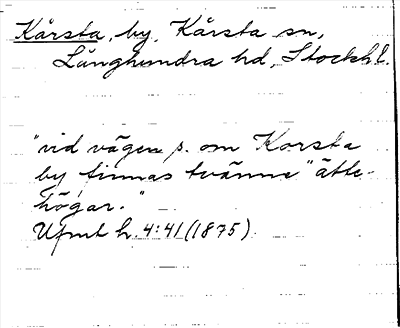 Kårsta, by, Kårsta sn,
Långhundra hd, Stockh. l.
"vid vägen s. om Korsta
by finnas tvänne "ätte-
högar."
Ufmt h. 4:41 (1875)